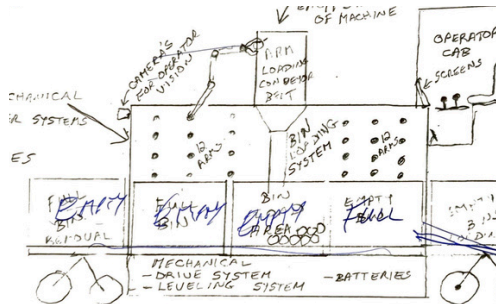 OF MACHINE
CAMERA'S
FOR OPERATOR
VISION
ARM
LOADING
CONVEYOR
BELT
OPERATOR
CAB
SCREENS
CHANICAL
R SYSTEMS
ES
12
ARMS
BIN
LOADING
SYSTEM
12
ARMS
FULL
BIN
EMPTY
FULL
BIN
EMPTY
BIN
AREA
EMPTY
EMPTY
FULL
MECHANICAL
- DRIVE SYSTEM
- LEVELING SYSTEM
- BATTERIES